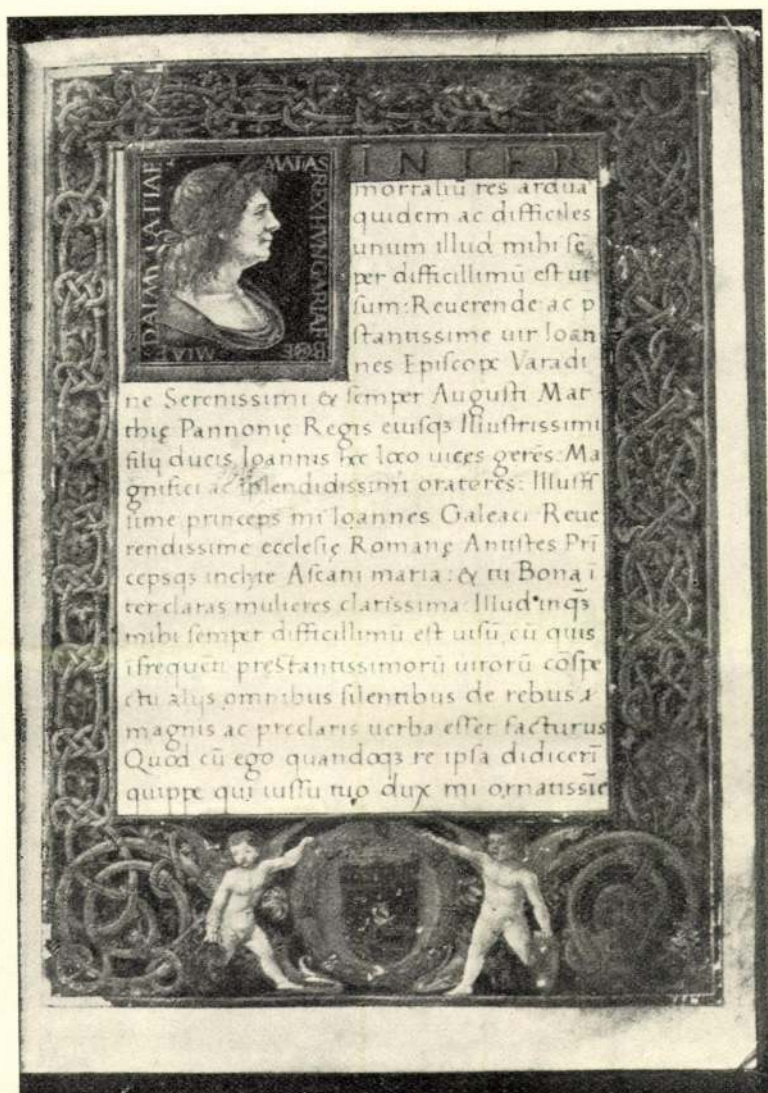 MATIAS
REX HVNGARIAE
DALMATIAE
INTER
mortaliū res ardua
quidem ac difficiles
unum illud mihi sē
per difficillimū est ui
sum: Reuerende ac p
stantissime uir Ioan
nes Episcope Varadi
ne Serenissimi & semper Augusti Mat
thię Pannonię Regis eiusqꝫ Illustrissimi
filij ducis Ioannis hęc loco uices gerēs: Ma
gnifici ac splendidissimi oratores: Illustris
sime princeps mi Ioannes Galeaci Reue
rendissime ecclesię Romanę Antistes Prī
cepsqꝫ inclyte Ascani maria: & tu Bona ī
ter claras mulieres clarissima: Illud inqꝫ
mihi semper difficillimū est uisū, cū quis
ī frequēti prestantissimorū uirorū cōspe
ctu alijs omnibus silentibus de rebus
magnis ac preclaris uerba esset facturus
Quod cū ego quandoqꝫ re ipsa didicerī
quippe qui iussu tuo dux mi ornatissīe